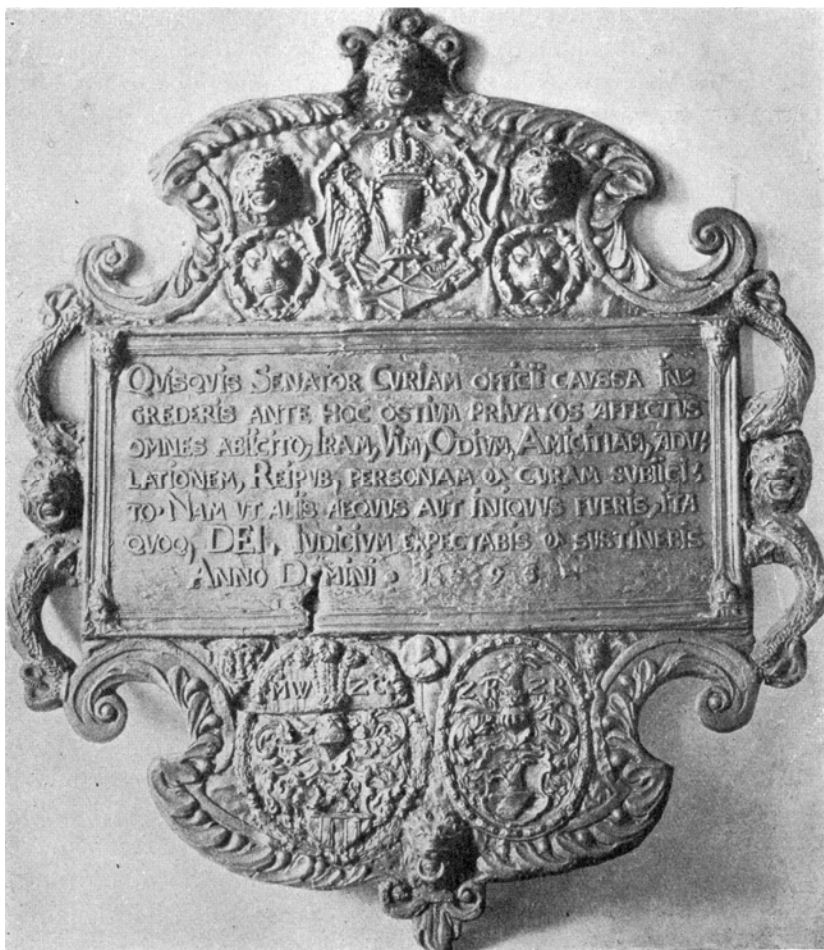 QVISQVIS SENATOR CVRIAM OFFICII CAVSSA IN⸗
GREDERIS ANTE HOC OSTIVM PRIVATOS AFFECTVS
OMNES ABIICITO, IRAM, VIM, ODIVM, AMICITIAM, ADV⸗
LATIONEM, REIPVB, PERSONAM & CVRAM SVBIICI⸗
TO· NAM VT ALIIS AEQVVS AVT INIQVVS FVERIS, ITA
QVOQ, DEI, IVDICIVM EXPECTABIS & SVSTINEBIS
ANNO DOMINI
MW ZC
ZR ZR